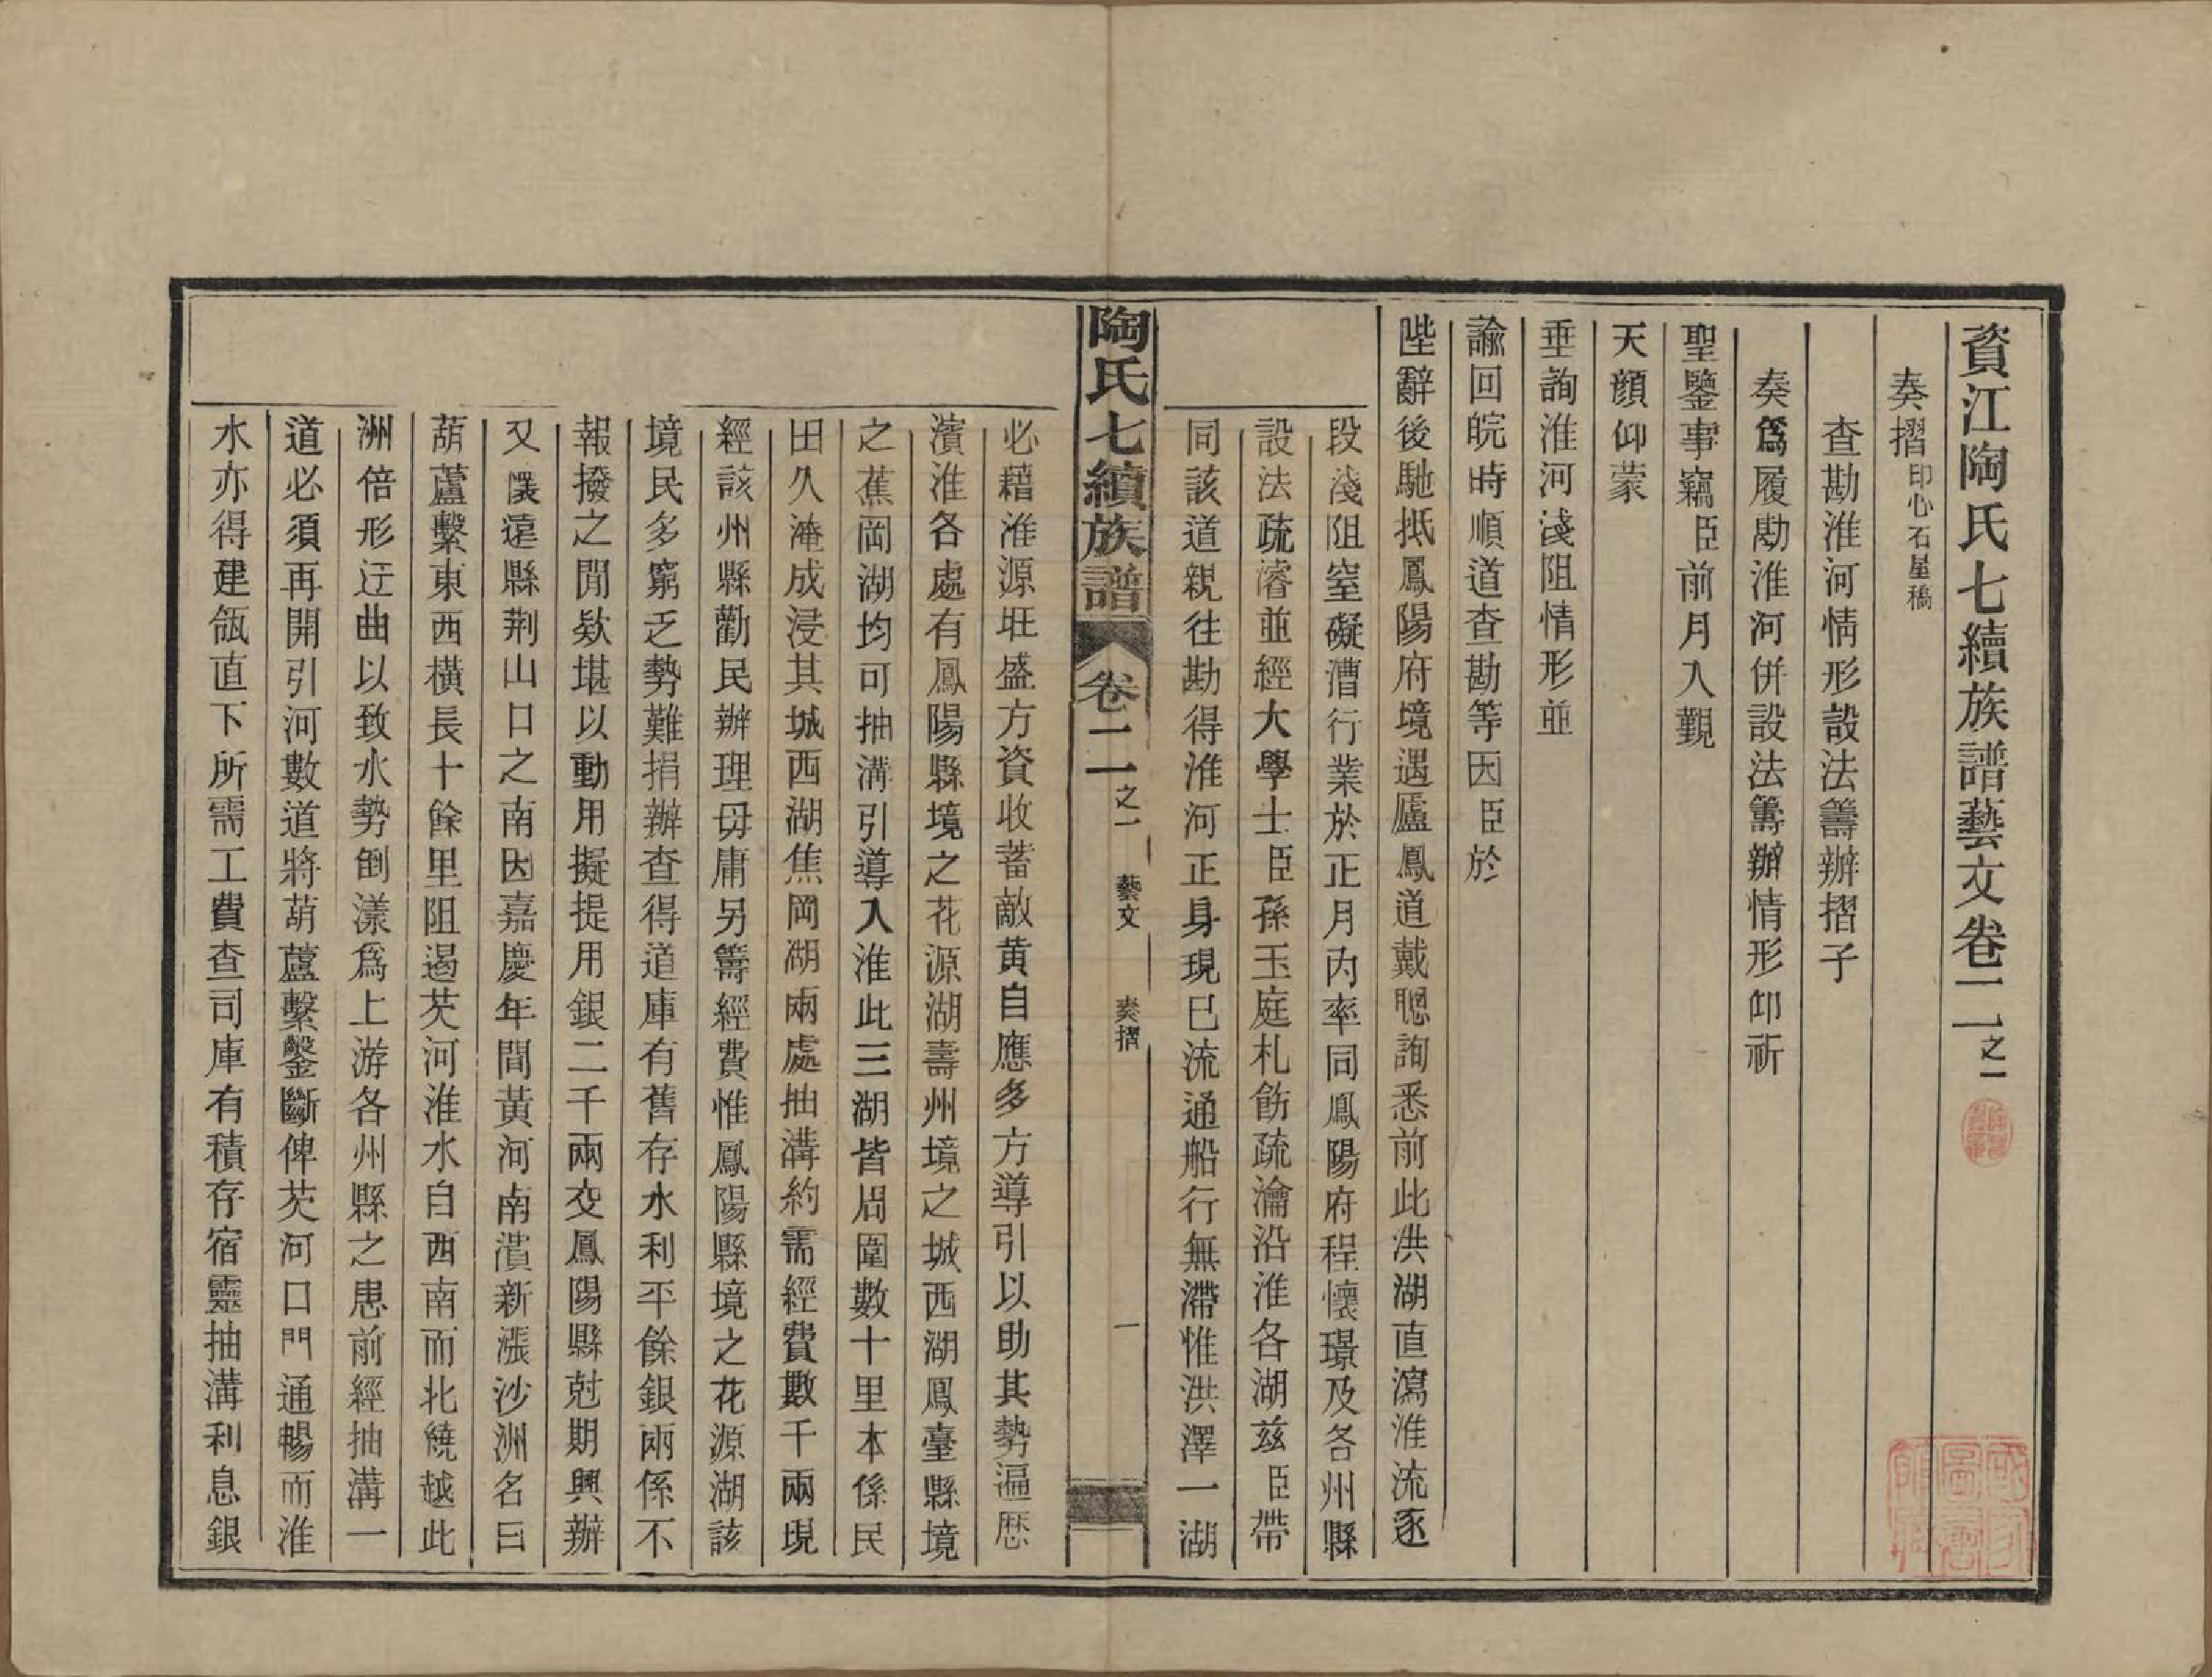 資江陶氏七續族譜藝文卷二之一
奏摺印心石屋稿
查勘淮河情形設法籌辦摺子
奏爲履勘淮河併設法籌辦情形仰祈
聖鑒事竊臣前月入覲
天顔仰蒙
垂詢淮河淺阻情形並
諭回皖時順道查勘等因臣於
陛辭後馳抵鳳陽府境遇廬鳳道戴聰詢悉前此洪湖直瀉淮流逐
段淺阻窒礙漕行業於正月內率同鳳陽府程懷璟及各州縣
設法疏濬並經大學士臣孫玉庭札飭疏瀹沿淮各湖茲臣帶
同該道親往勘得淮河正身現已流通船行無滯惟洪澤一湖
陶氏七續族譜
卷二之一
藝文
奏摺
一
必藉淮源旺盛方資收蓄敵黄自應多方導引以助其勢遍歷
濱淮各處有鳳陽縣境之花源湖壽州境之城西西湖鳳臺縣境
之蕉岡湖均可抽溝引導入淮此三湖皆周圍數十里本係民
田久淹成浸其城西湖焦岡湖兩處抽溝約需經費數千兩現
經該州縣勸民辦理毋庸另籌經費惟鳳陽縣境之花源湖該
境民多窮乏勢難捐辦查得道庫有舊存水利平餘銀兩係不
報撥之閒款堪以動用擬提用銀二千兩交鳳陽縣尅期興辦
又懷遠縣荆山口之南因嘉慶年間黃河南潰新漲沙洲名曰
葫蘆繫東西橫長十餘里阻遏茨河淮水自西南而北繞越此
洲倍形迂曲以致水勢倒漾爲上游各州縣之患前經抽溝一
道必須再開引河數道將葫蘆繫鑿斷俾茨河口門通暢而淮
水亦得建瓴直下所需工費查司庫有積存宿靈抽溝利息銀